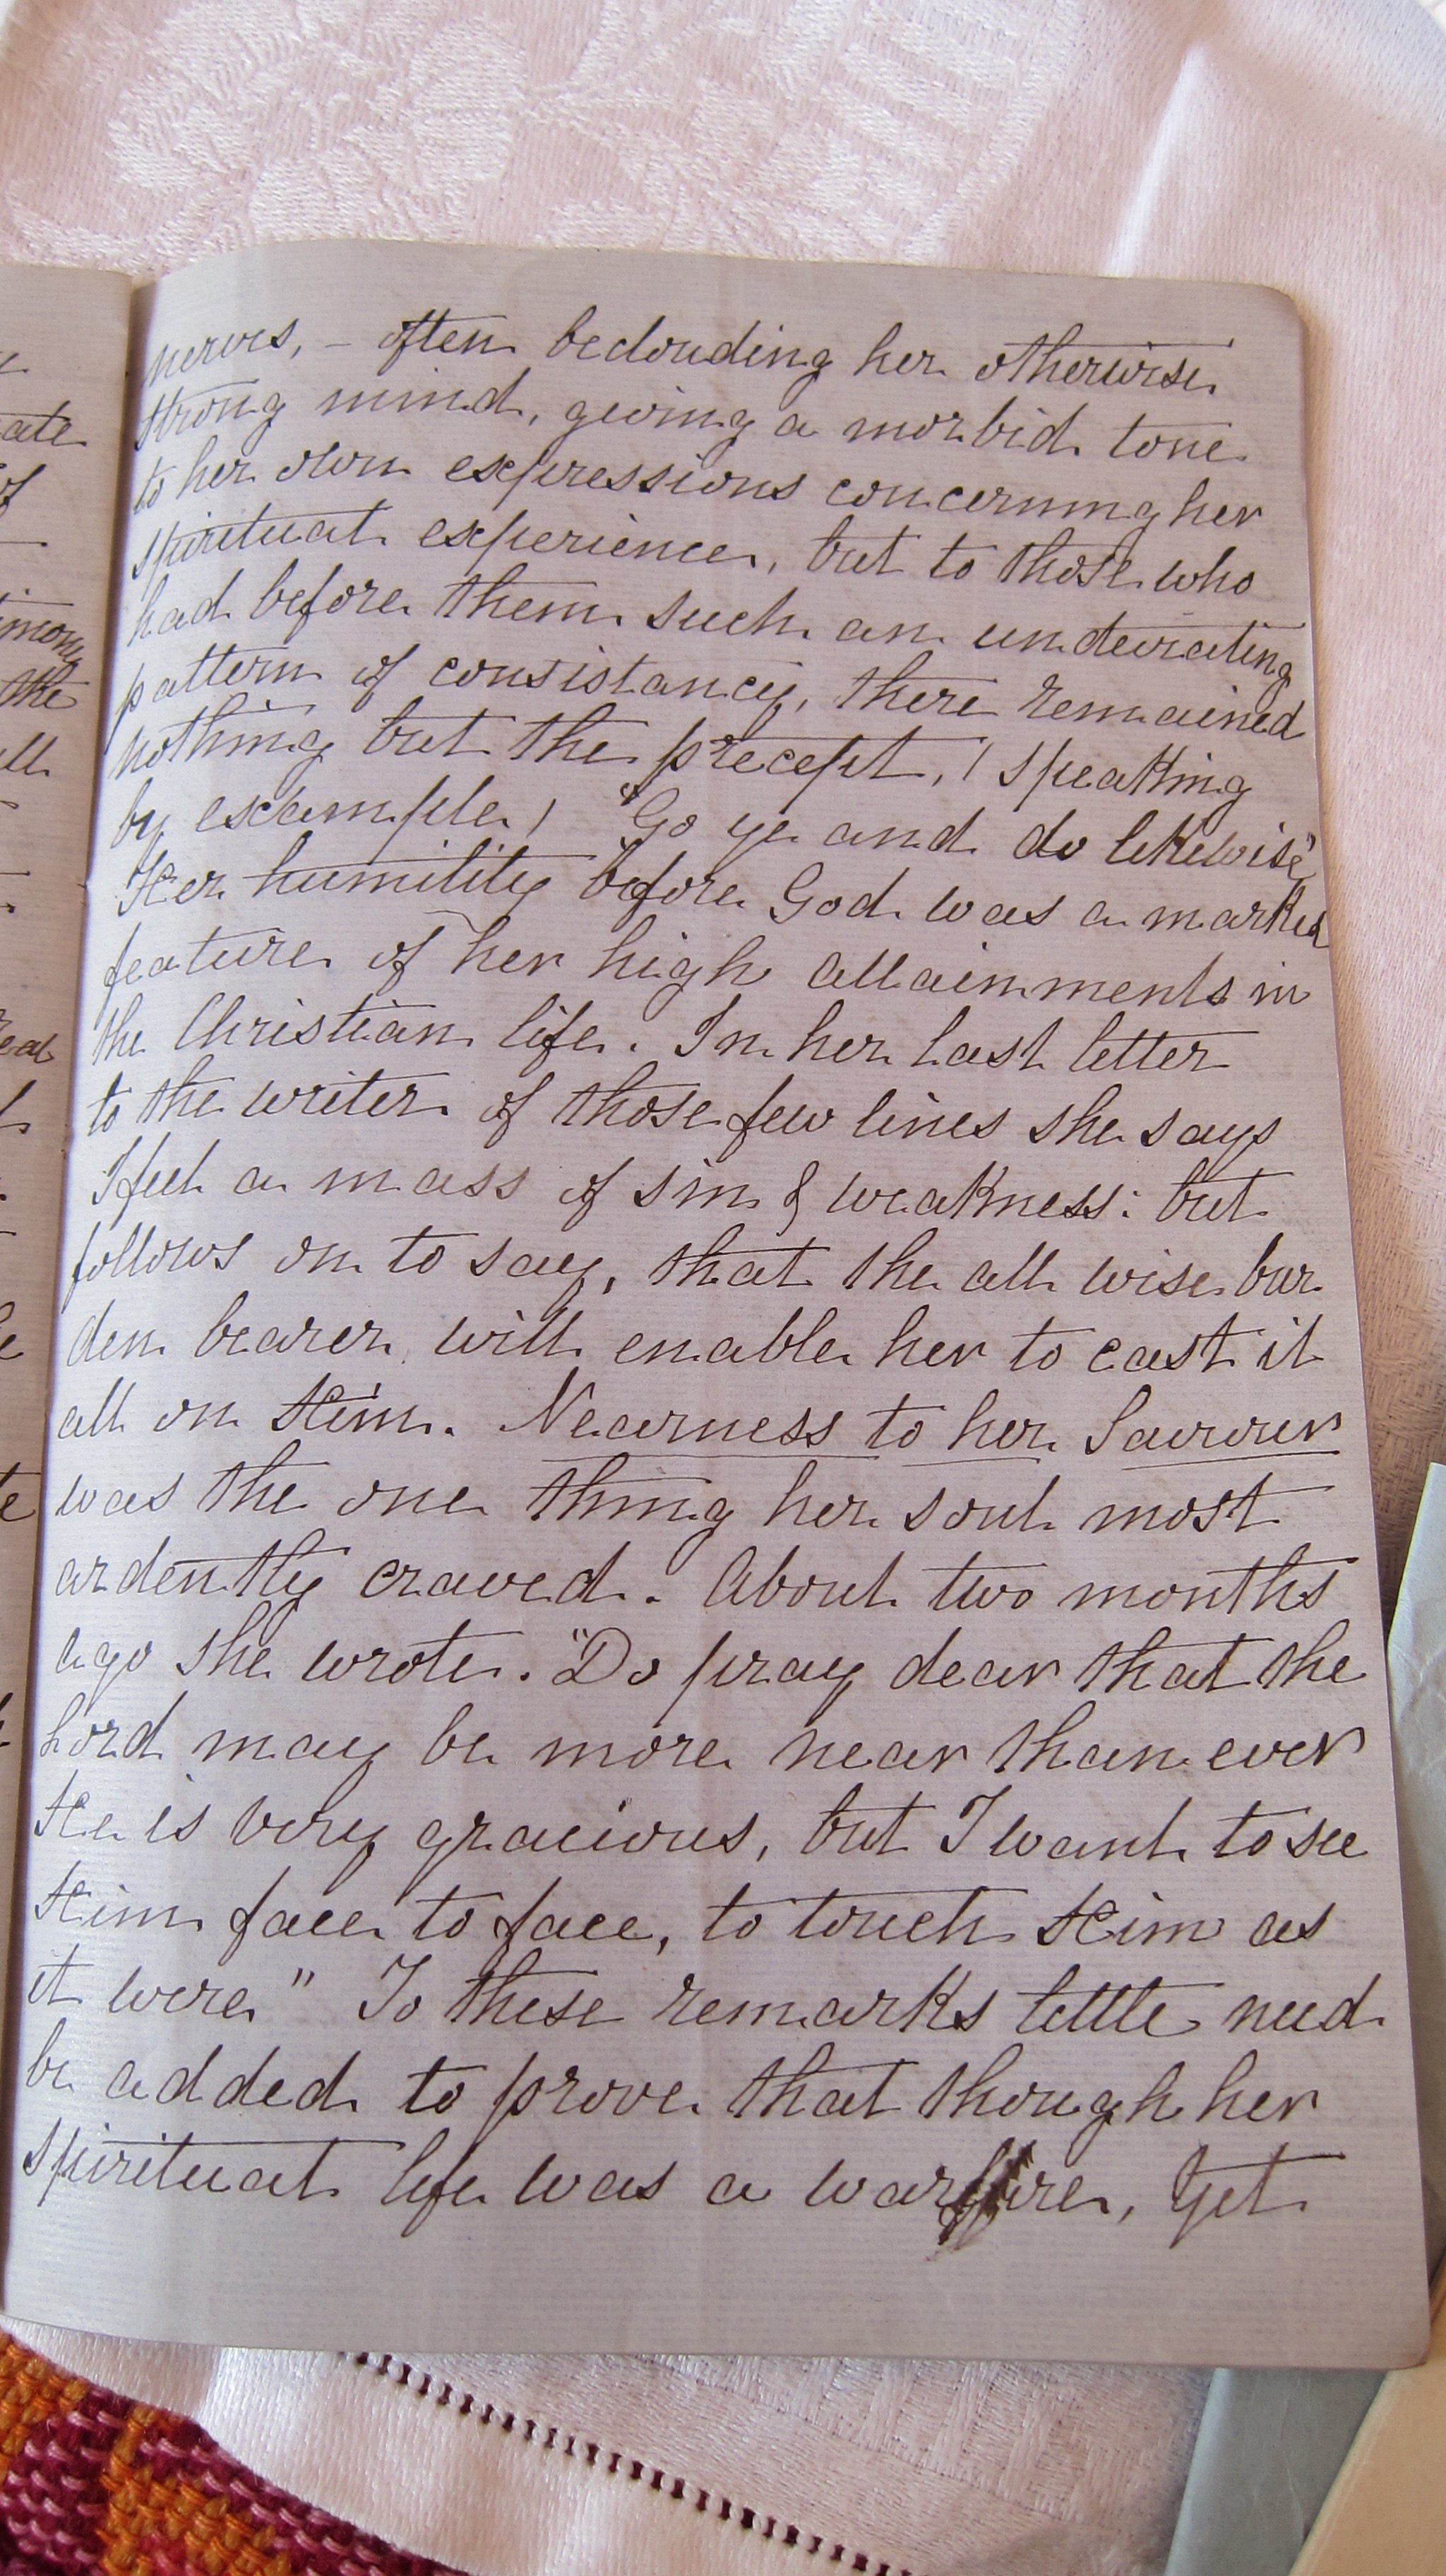 nerves, – often beclouding her otherwise
strong mind, giving a morbid tone
to her own expressions concerning her
spiritual experience, but to those who
had before them such an undeviating
pattern of consistancy, there remained
nothing but the precept, (speaking
by example) "Go ye and do likewise"
Her humility before God was a marked
feature of her high attainments in
the Christian life. In her last letter
to the writer of those few lines she says
I feel a mass of sin & weakness: but
follows on to say, that the all wise bur
den bearer will enable her to cast it
all on Him. Nearness to her Saviour
was the one thing her soul most
ardently craved. About two months
ago she wrote. "Do pray dear that the
Lord may be more near than ever
He is very gracious, but I want to see
Him face to face, to touch Him as
it were" To these remarks little need
be added to prove that though her
spiritual life was a warfare, yet
ate
of
the